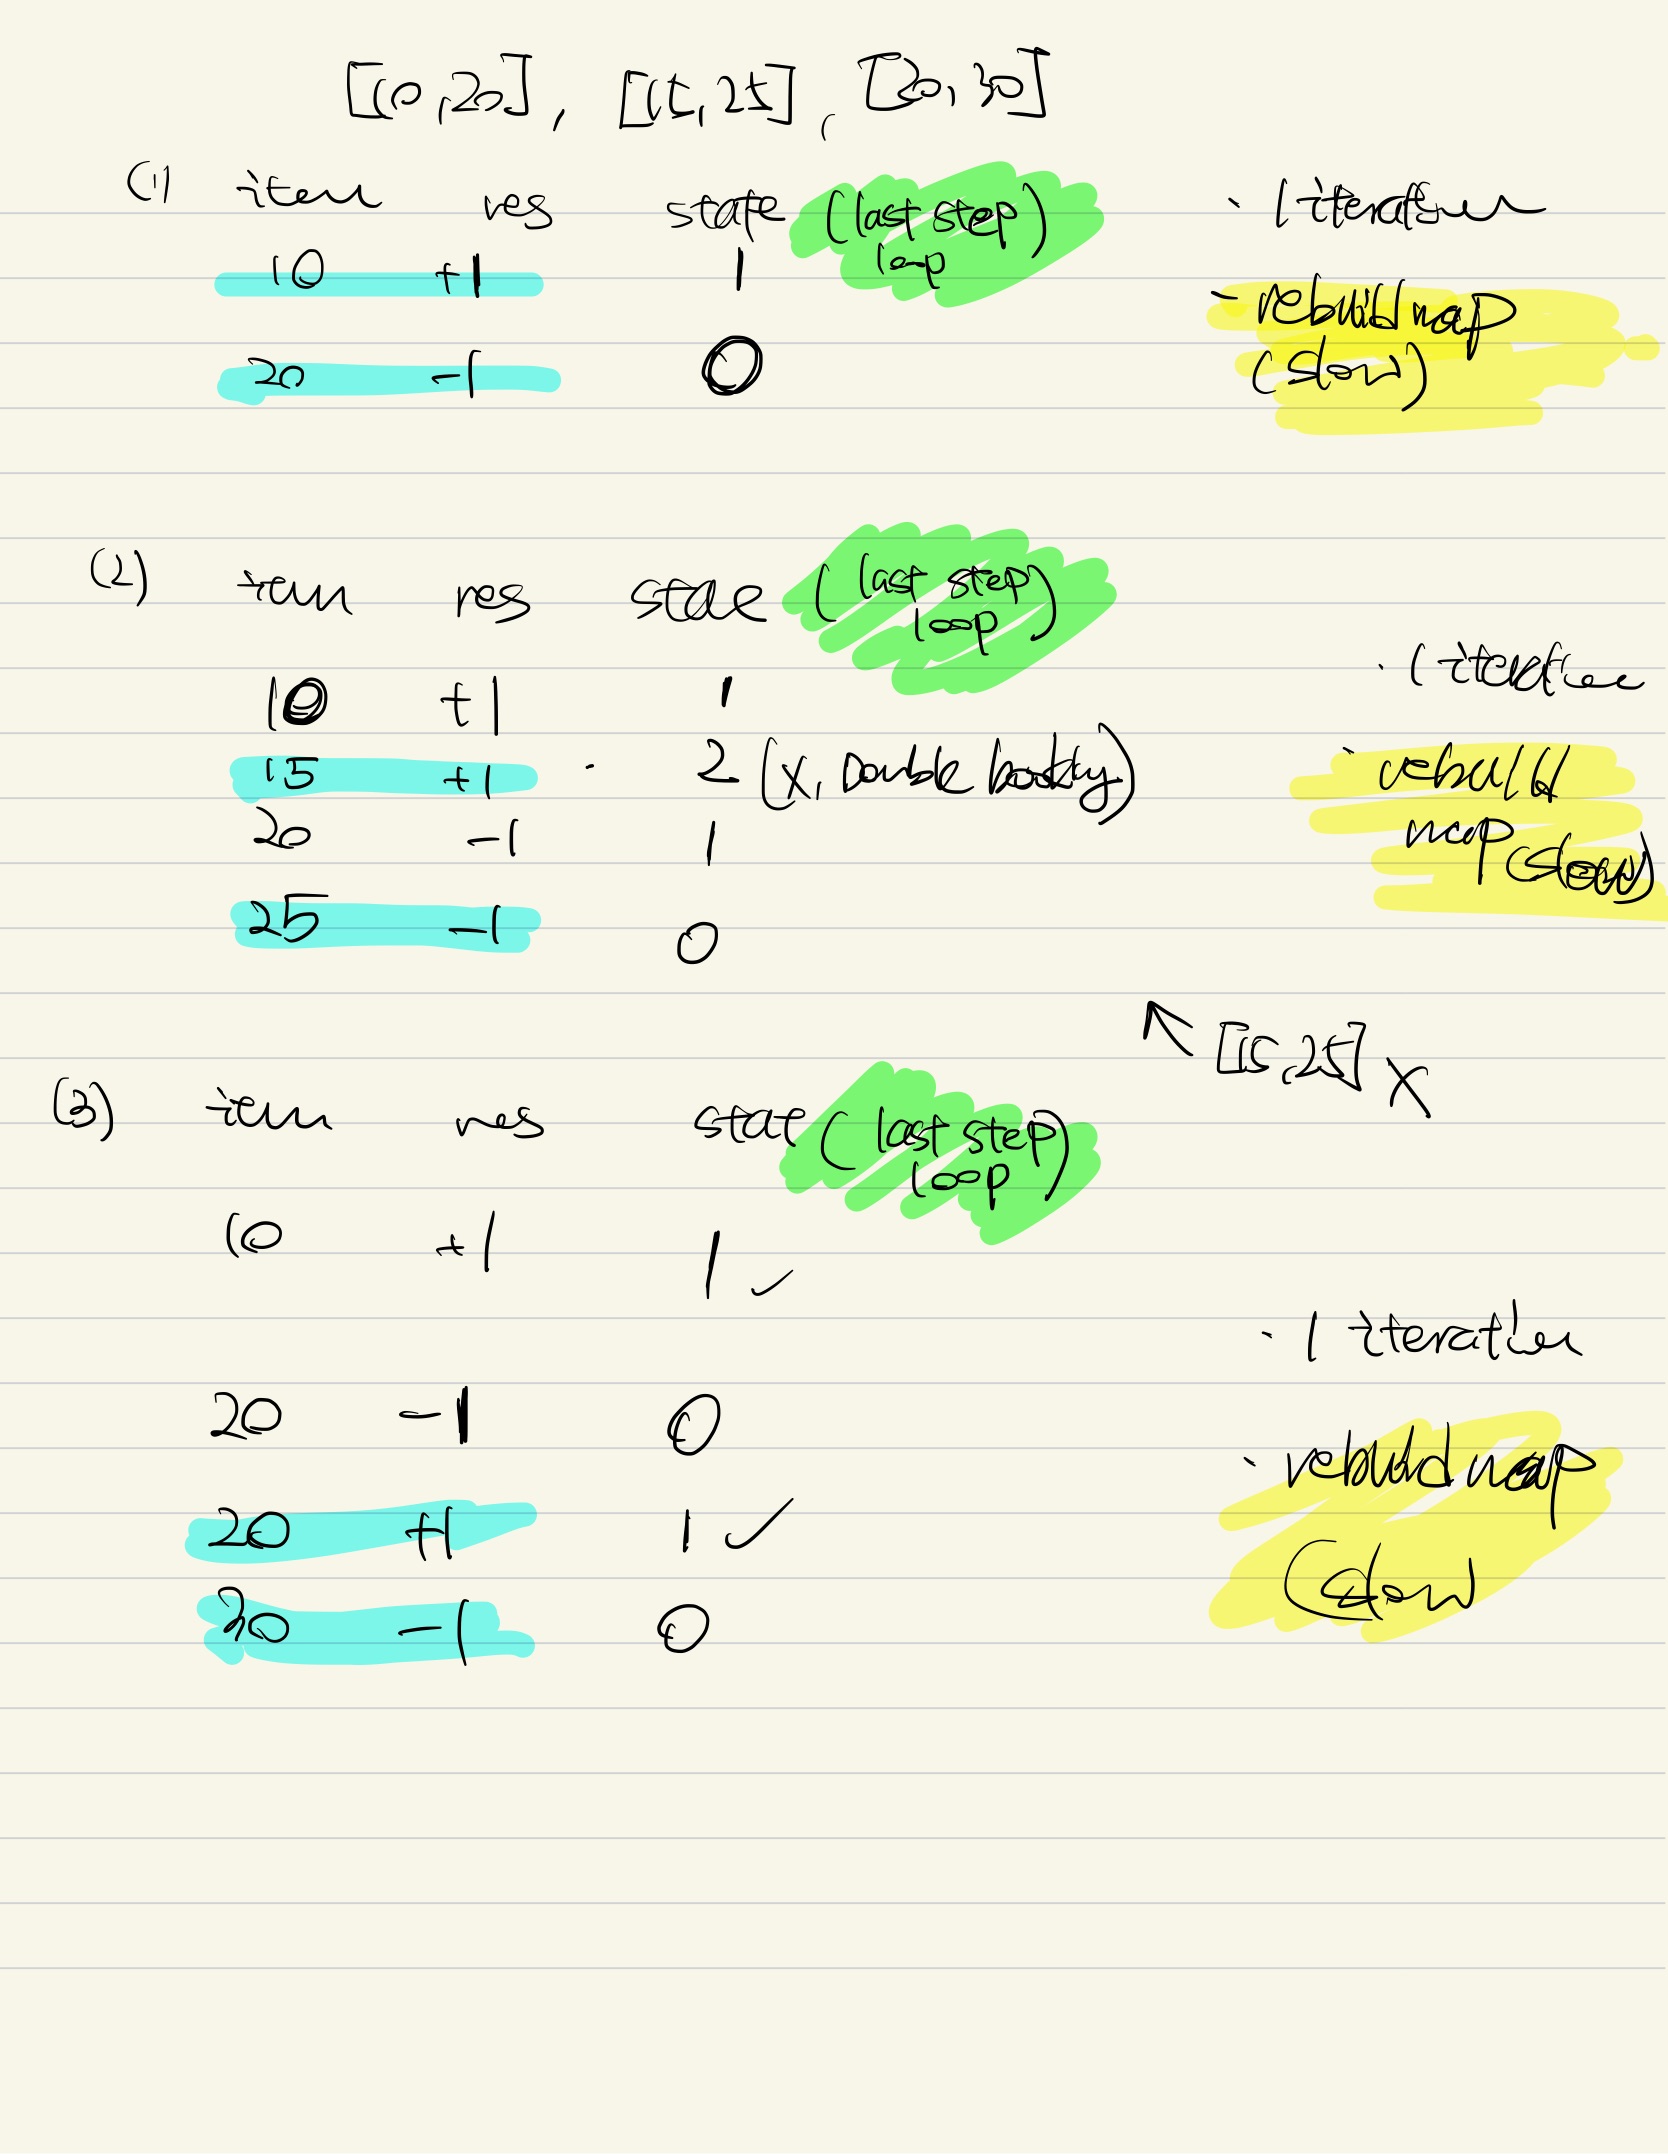 [[10,20], [15,25], [20,30]
(1) item res state (last step)
loop
10 +1 1
20 -1 0
· 1 iteration
- rebuild map
(slow)
(2) item res state (last step)
loop
10 +1 1
15 +1 · 2 (X, Double booking)
20 -1 1
25 -1 0
· 1 iteration
- rebuild
map (slow)
↖ [15,25] X
(3) item res stat (last step)
loop
10 +1 1 ✓
20 -1 0
20 +1 1 ✓
30 -1 0
· 1 iteration
· rebuild map
(slow